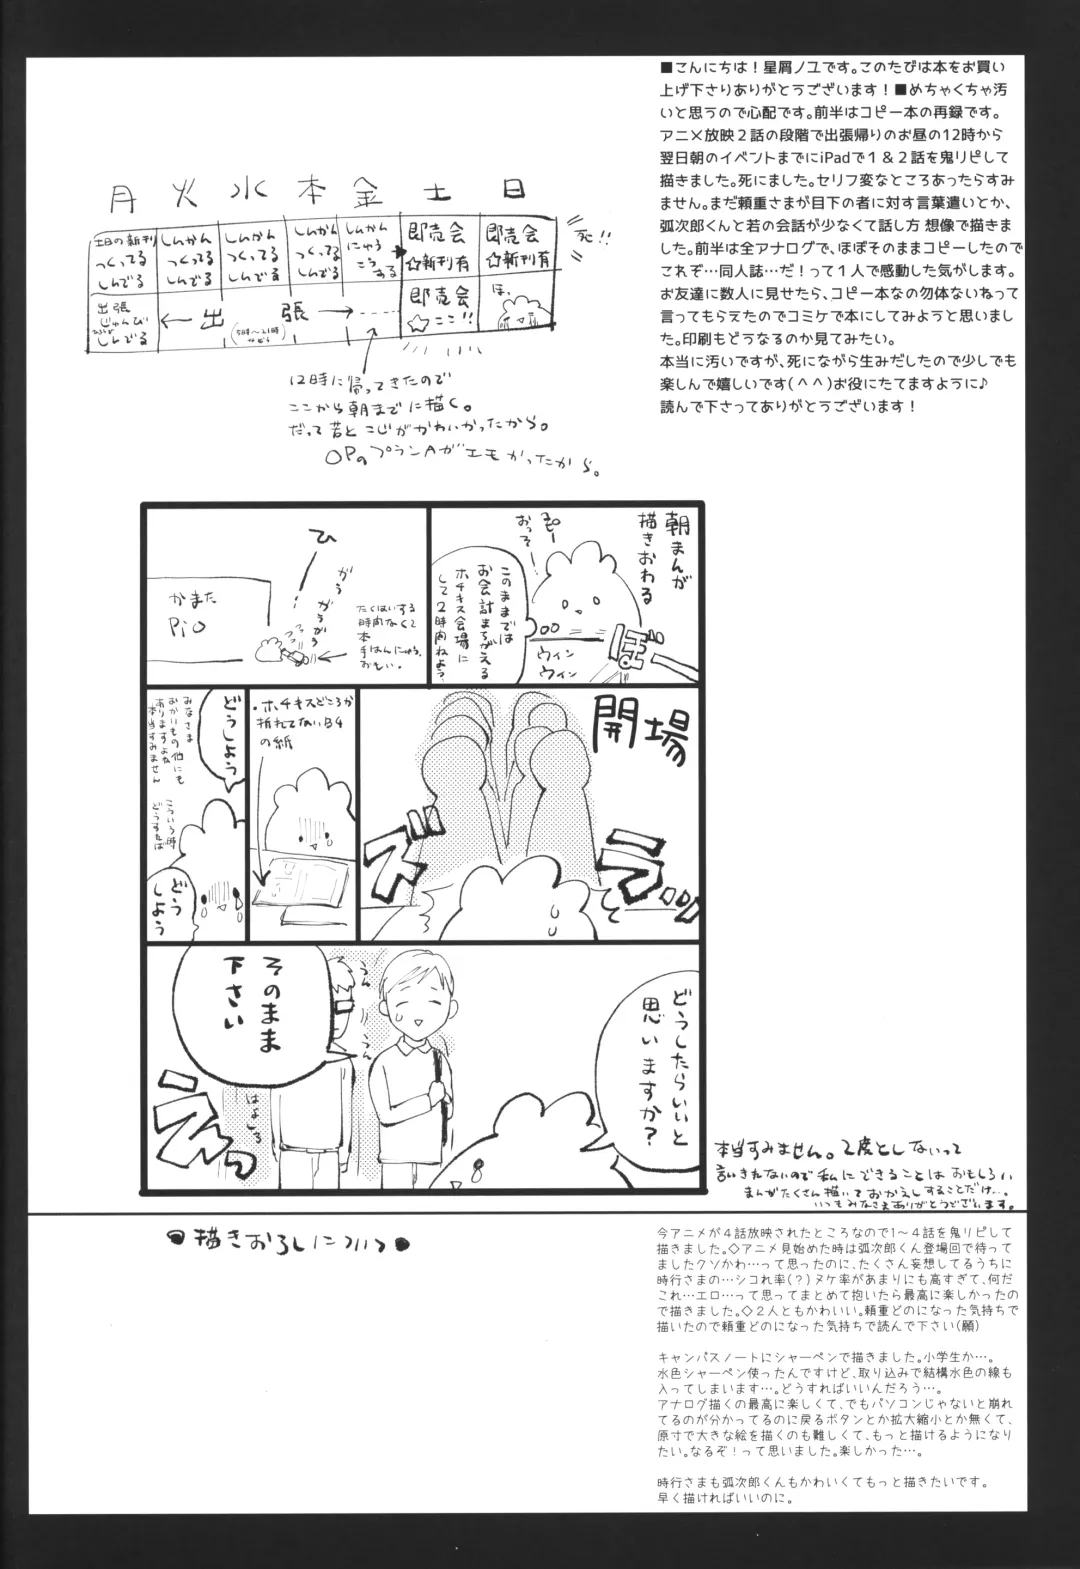 ■こんにちは！星屑ノユです。このたびは本をお買い
上げ下さりありがとうございます！■めちゃくちゃ汚
いと思うので心配です。前半はコピー本の再録です。
アニメ放映２話の段階で出張帰りのお昼の12時から
翌日朝のイベントまでにiPadで１＆２話を鬼リピして
描きました。死にました。セリフ変なところあったらすみ
ません。まだ頼重さまが目下の者に対す言葉遣いとか、
弧次郎くんと若の会話が少なくて話し方 想像で描きま
した。前半は全アナログで、ほぼそのままコピーしたので
これぞ…同人誌…だ！って１人で感動した気がします。
お友達に数人に見せたら、コピー本なの勿体ないねって
言ってもらえたのでコミケで本にしてみようと思いまし
た。印刷もどうなるのか見てみたい。
本当に汚いですが、死にながら生みだしたので少しでも
楽しんで嬉しいです(＾＾)お役にたてますように♪
読んで下さってありがとうございます！
月 火 水 本 金 土 日
土日の新刊
つくってる
しんでる
しんかん
つくってる
しんでる
しんかん
つくってる
しんでる
しんかん
つくってる
しんでる
しんかん
にゅう
こう
ある
即売会
☆新刊有
即売会
☆新刊有
死!!
出張
じゅんび
しんでる
←出 張→
即売会
☆ここ!!
ほ、
12時に帰ってきたので
ここから朝までに描く。
だって若とこじがかわいかったから。
OPのプランAがエモかったから。
朝まんが
描きおわる
おっそ…
このままでは
お会計まちがえる
ホチキス会場に
して2時間ねよう
ウィン
ウィン
ひ
がう
がうがう
かまた
PiO
たくはいする
時間なくて
本
手はんにゅう。
おもい。
開場
ズラッ…
・ホチキスどころか
折れてないB4
の紙
どうしよう
みなさま
おかいもの他にも
ありますよね
本当すみません
こういう時
どうすれば
どう
しよう
どうしたらいいと
思いますか？
うん
うん
そのまま
下さい
はよしろ
えっ
本当すみません。2度としないって
言いきれないので私にできることはおもしろい
まんがたくさん描いておかえしすることだけ…。
いつもみなさまありがとうございます。
●描きおろしについて●
今アニメが４話放映されたところなので1～４話を鬼リピして
描きました。◇アニメ見始めた時は弧次郎くん登場回で待って
ましたクソかわ…って思ったのに、たくさん妄想してるうちに
時行さまの…シコれ率(？)ヌケ率があまりにも高すぎて、何だ
これ…エロ…って思ってまとめて抱いたら最高に楽しかったの
で描きました。◇２人ともかわいい。頼重どのになった気持ちで
描いたので頼重どのになった気持ちで読んで下さい(願)
キャンパスノートにシャーペンで描きました。小学生か…。
水色シャーペン使ったんですけど、取り込みで結構水色の線も
入ってしまいます…。どうすればいいんだろう…。
アナログ描くの最高に楽しくて、でもパソコンじゃないと崩れ
てるのが分かってるのに戻るボタンとか拡大縮小とか無くて、
原寸で大きな絵を描くのも難しくて、もっと描けるようになり
たい。なるぞ！って思いました。楽しかった…。
時行さまも弧次郎くんもかわいくてもっと描きたいです。
早く描ければいいのに。